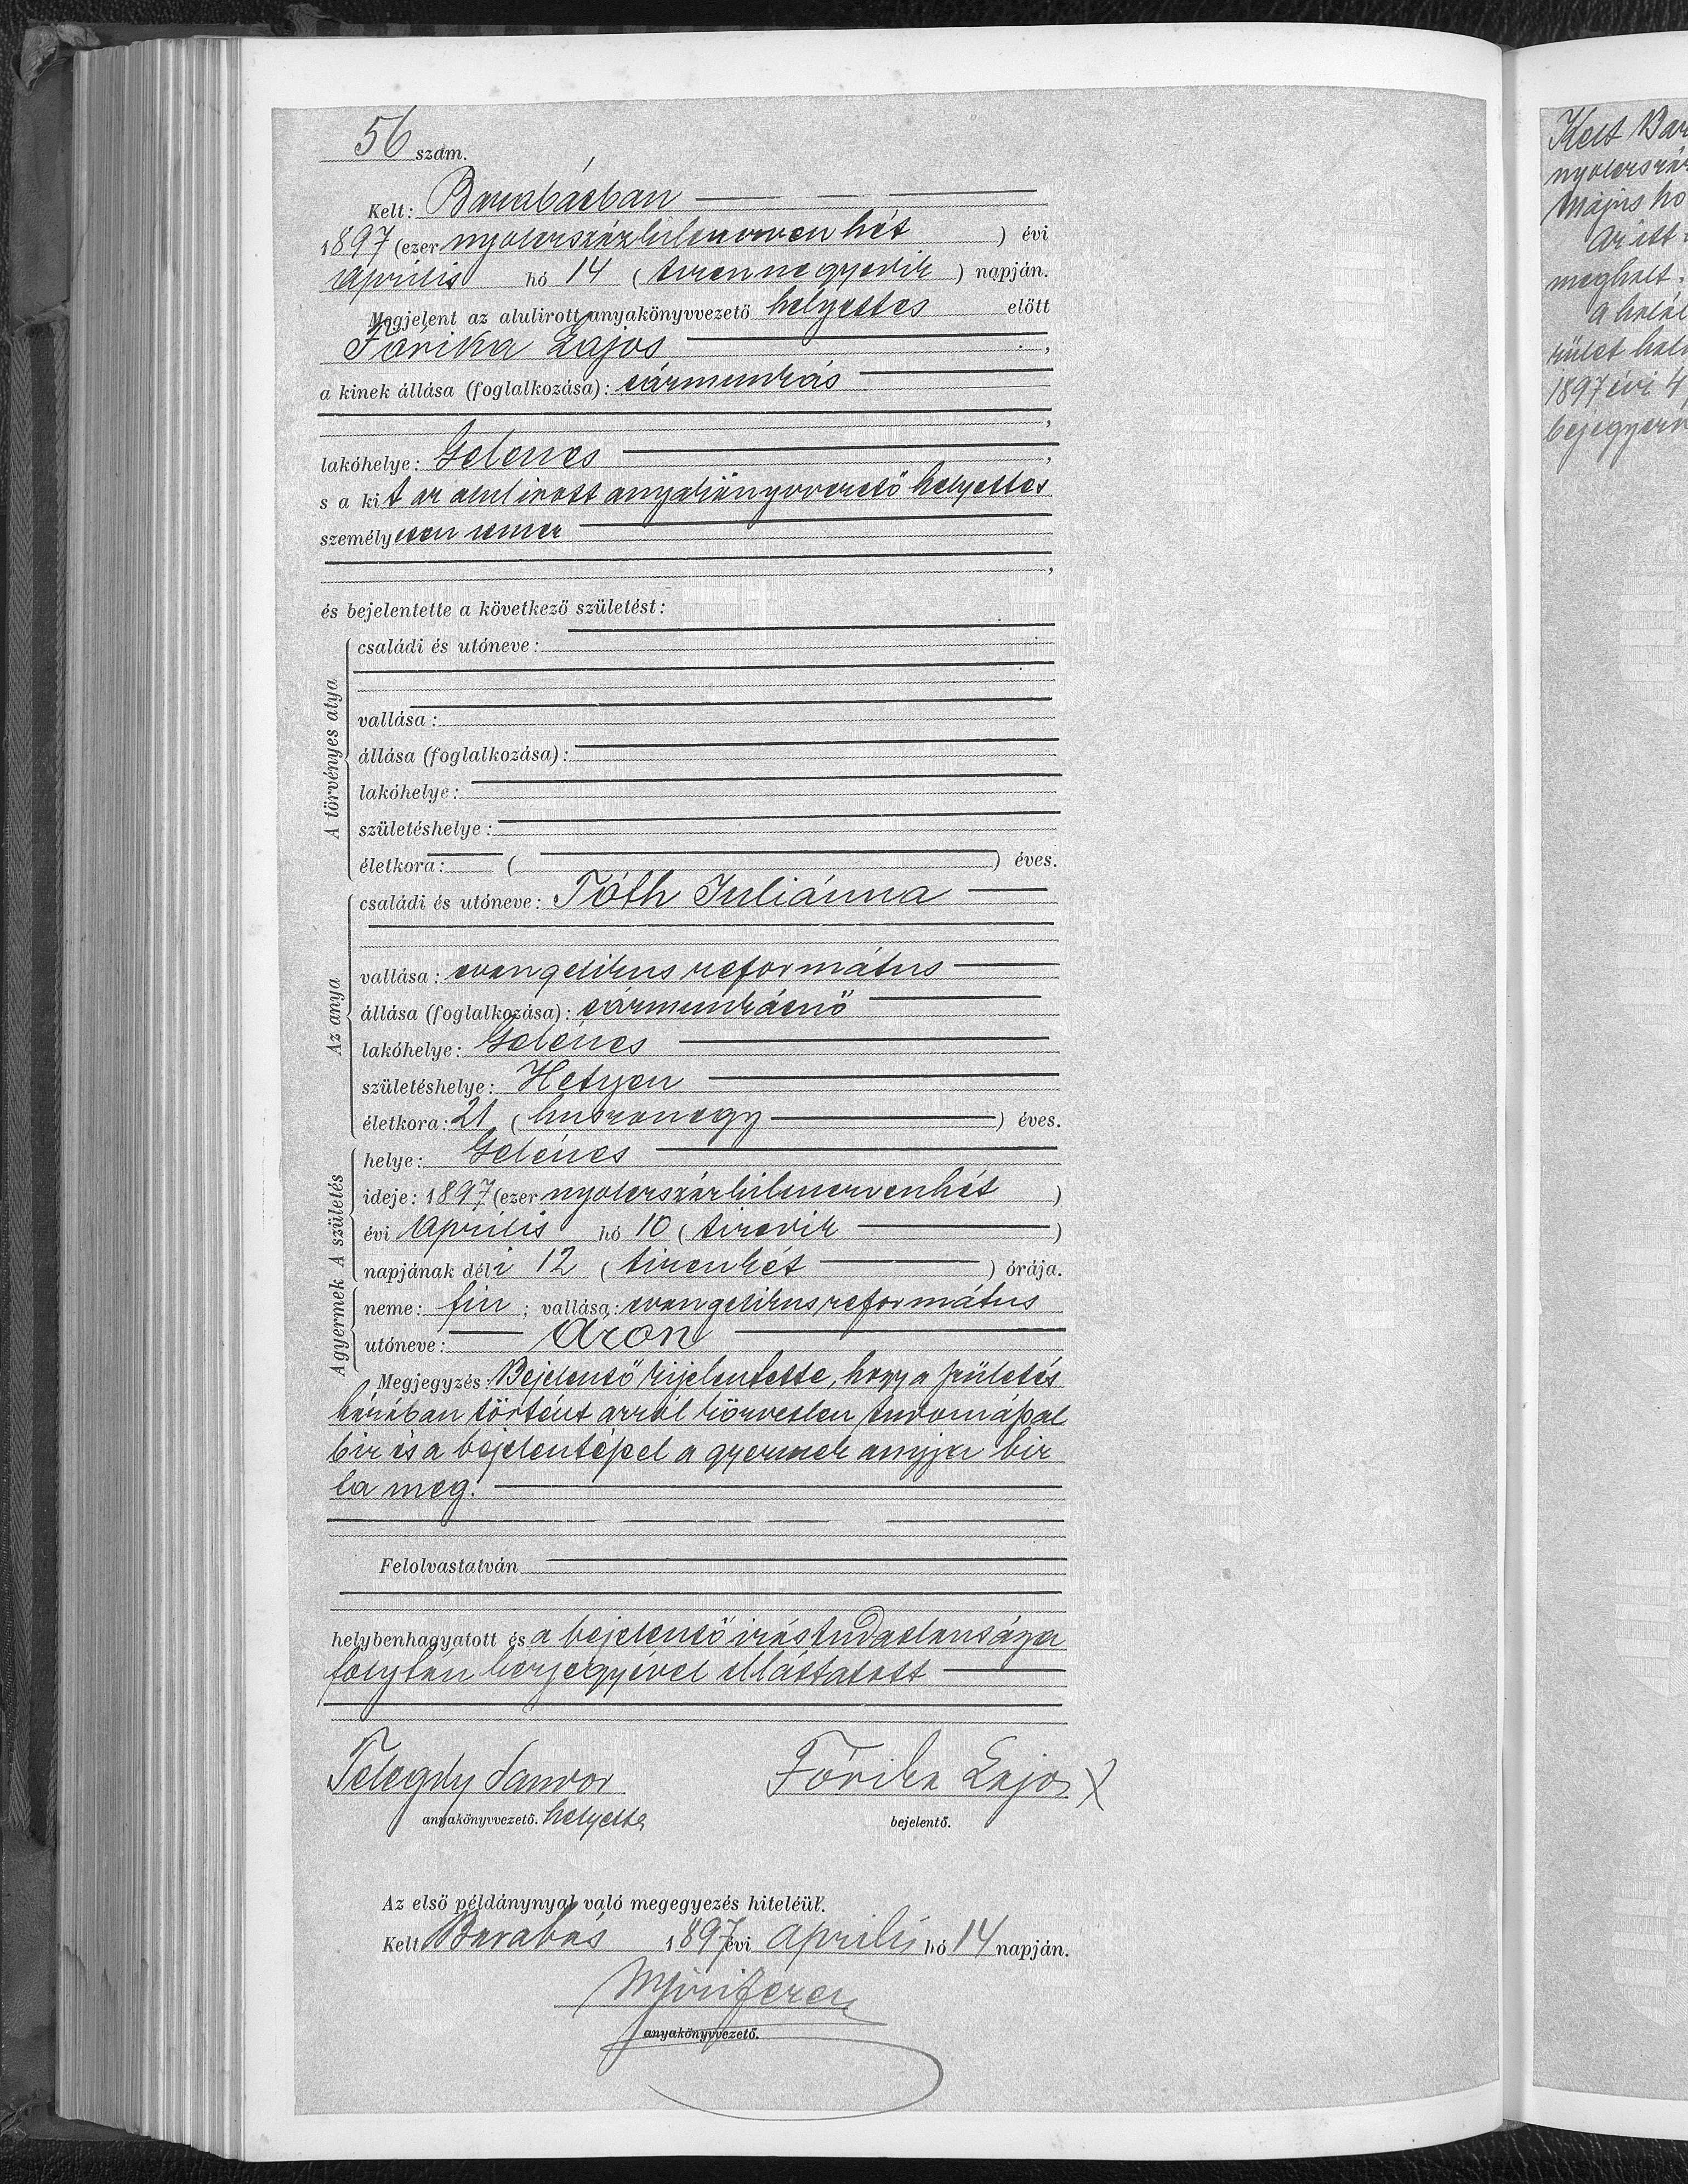 56 szám.
Kelt: Barabásban
1897 (ezer nyolczszázkilenczven hét) évi
április hó 14 (tizennegyedik) napján.
Megjelent az alulirott anyakönyvvezető helyettes előtt
Fórika Lajos,
a kinek állása (foglalkozása): gármunkás
,
lakóhelye: Gelénes,
s a kit az alulirott anyakönyvvezető helyettes
személyesen ismer
,
és bejelentette a következő születést:
A törvényes atya
családi és utóneve:
vallása:
állása (foglalkozása):
lakóhelye:
születéshelye:
életkora: ( ) éves.
Az anya
családi és utóneve: Tóth Juliánna
vallása: evangelikus református
állása (foglalkozása):
lakóhelye: Gelénes
születéshelye: Hetyen
életkora: 21 (huszonegy) éves.
A születés
helye: Gelénes
ideje: 1897 (ezer nyolczszázkilenczvenhét)
évi április hó 10 (tizedik)
napjának déli 12 (tizenkét) órája.
A gyermek
neme: fiu; vallása: evangelikus református
utóneve: Áron
Megjegyzés: Bejelentő kijelentette, hogy a születés
házában történt arról közvetlen tudomással
bir és a bejelentéssel a gyermek anyja biz
ta meg.
Felolvastatván
helybenhagyatott és a bejelentő irástudatlansága
folytán kézjegyével elláttatott
Telegdy Sándor Fórika Lajos X
anyakönyvvezető. helyettes bejelentő.
Az első példánynyal való megegyezés hiteléül.
Kelt Barabás 1897 évi április hó 14 napján.
anyakönyvvezető.
Kelt Bar
május ho
Az itt
meghalt.
A halál
1897 évi 4